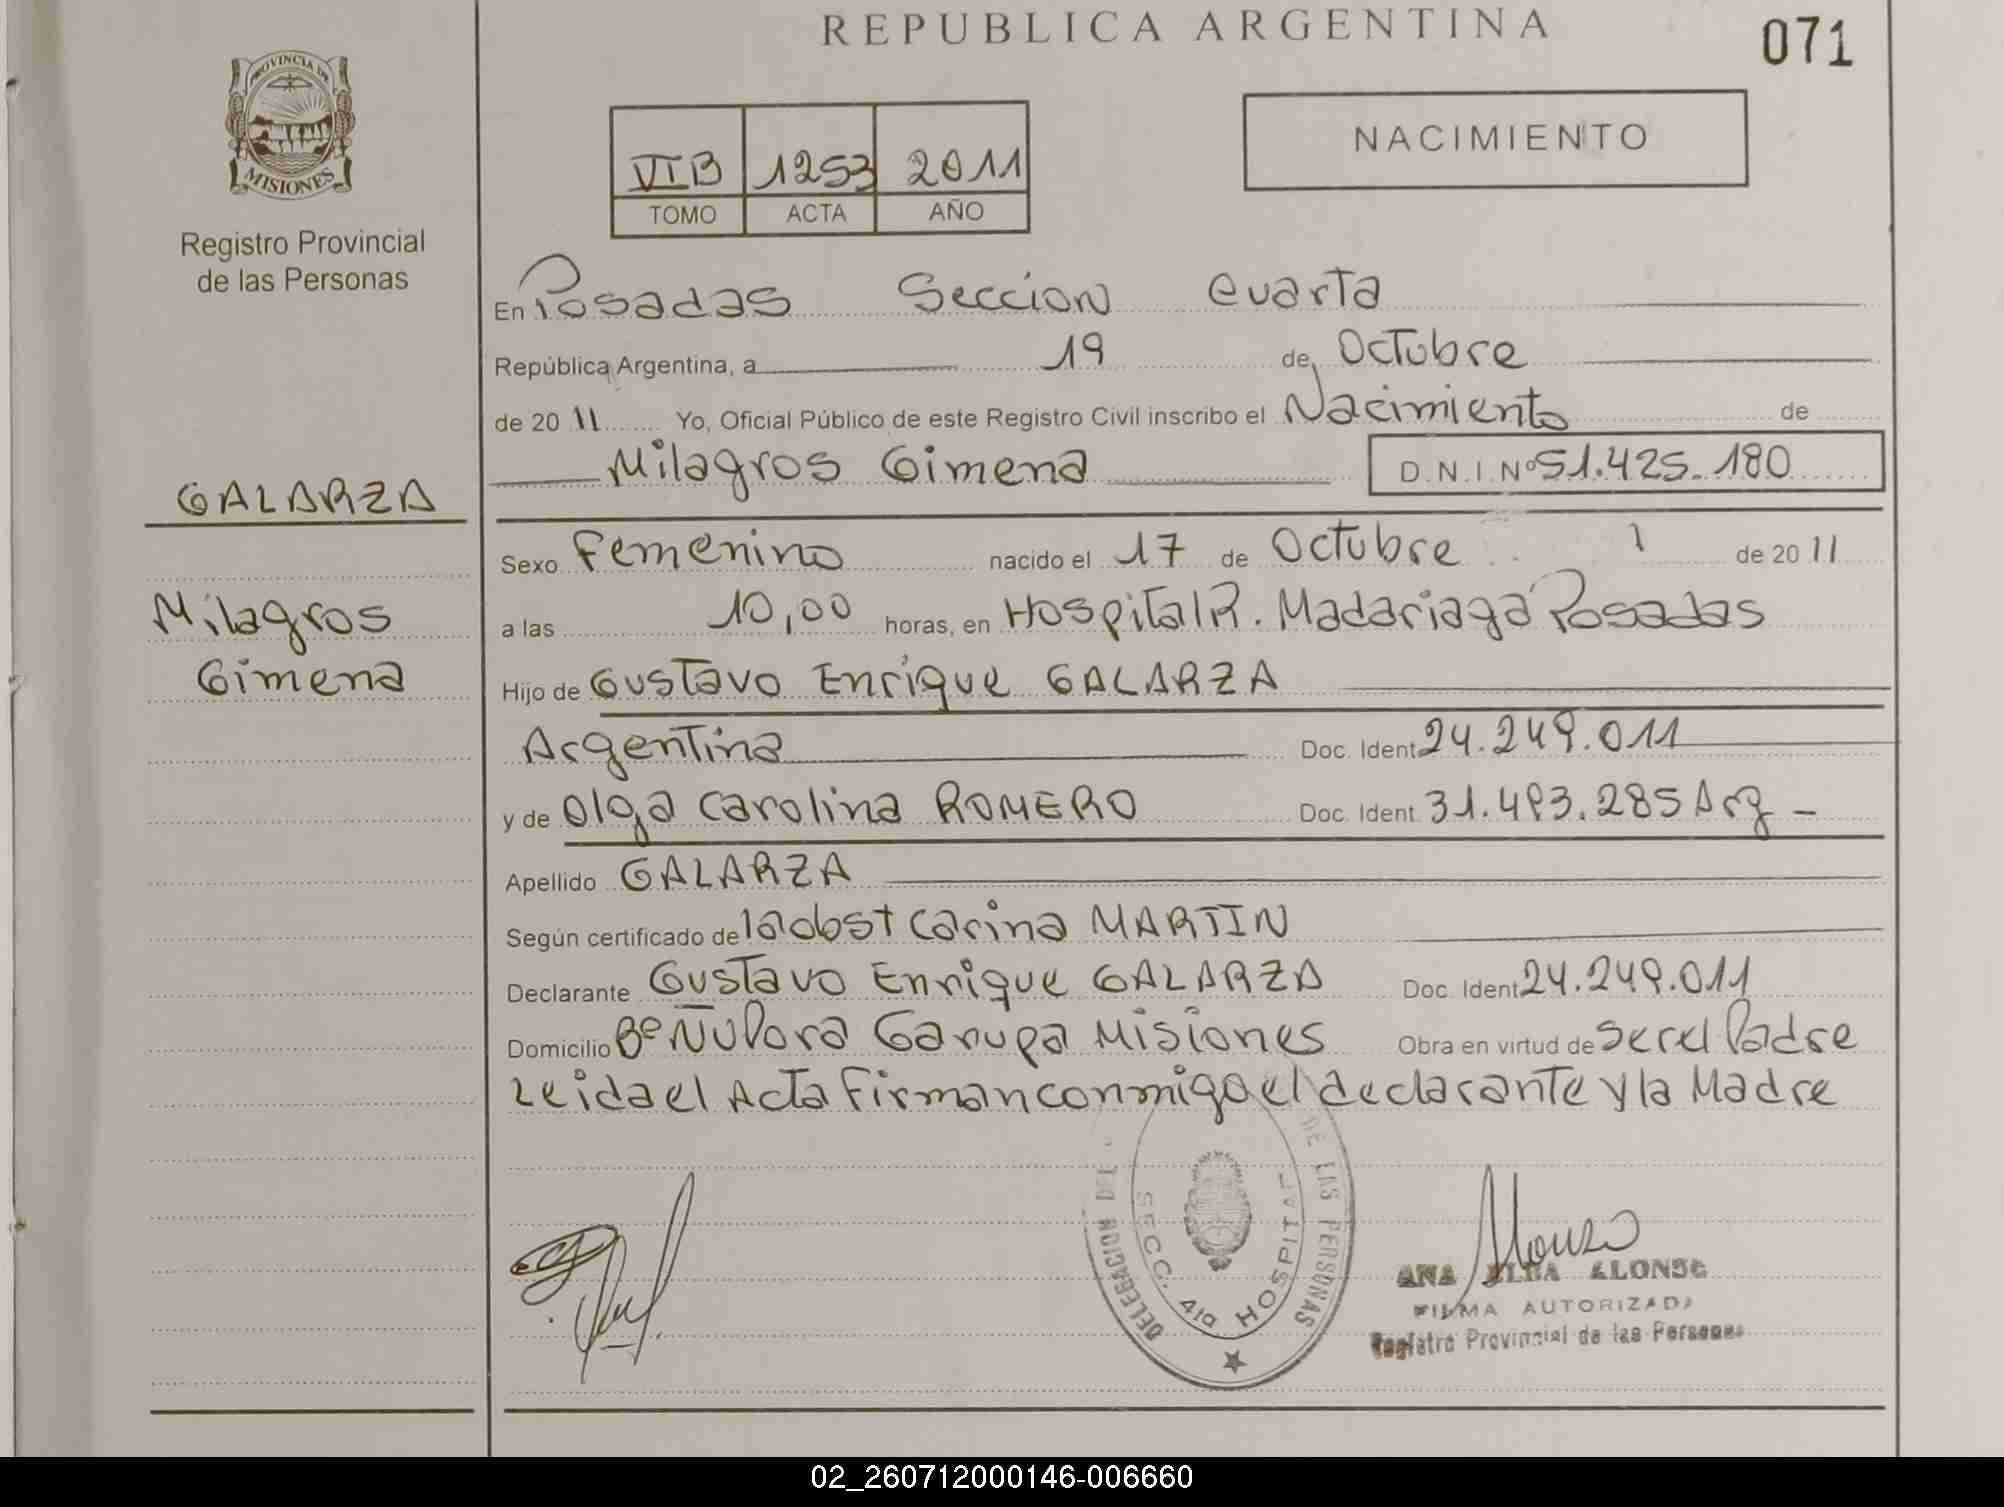 REPUBLICA ARGENTINA
071
PROVINCIA DE
MISIONES
Registro Provincial
de las Personas
VI B 1253 2011
TOMO ACTA AÑO
NACIMIENTO
En Posadas Seccion Cuarta
República Argentina, a 19 de Octubre
de 20 11 Yo, Oficial Público de este Registro Civil inscribo el Nacimiento de
Milagros Gimena D.N.I.Nº 51.425.180
GALARZA
Milagros
Gimena
Sexo Femenino nacido el 17 de Octubre de 20 11
a las 10,00 horas, en Hospital R. Madariaga Posadas
Hijo de Gustavo Enrique GALARZA
Argentina Doc. Ident 24.249.011
y de Olga Carolina ROMERO Doc. Ident. 31.493.285 Arg -
Apellido GALARZA
Según certificado de la obst Carina MARTIN
Declarante Gustavo Enrique GALARZA Doc. Ident 24.249.011
Domicilio Bº Ñu Pora Garupa Misiones Obra en virtud de ser el Padre
Leida el Acta Firman conmigo el declarante y la Madre
DELEGACION DEL
DE LAS PERSONAS
SECC. 4ta HOSPITAL
Alonso
ANA ELBA ALONSO
FIRMA AUTORIZADA
Registro Provincial de las Personas
02_260712000146-006660